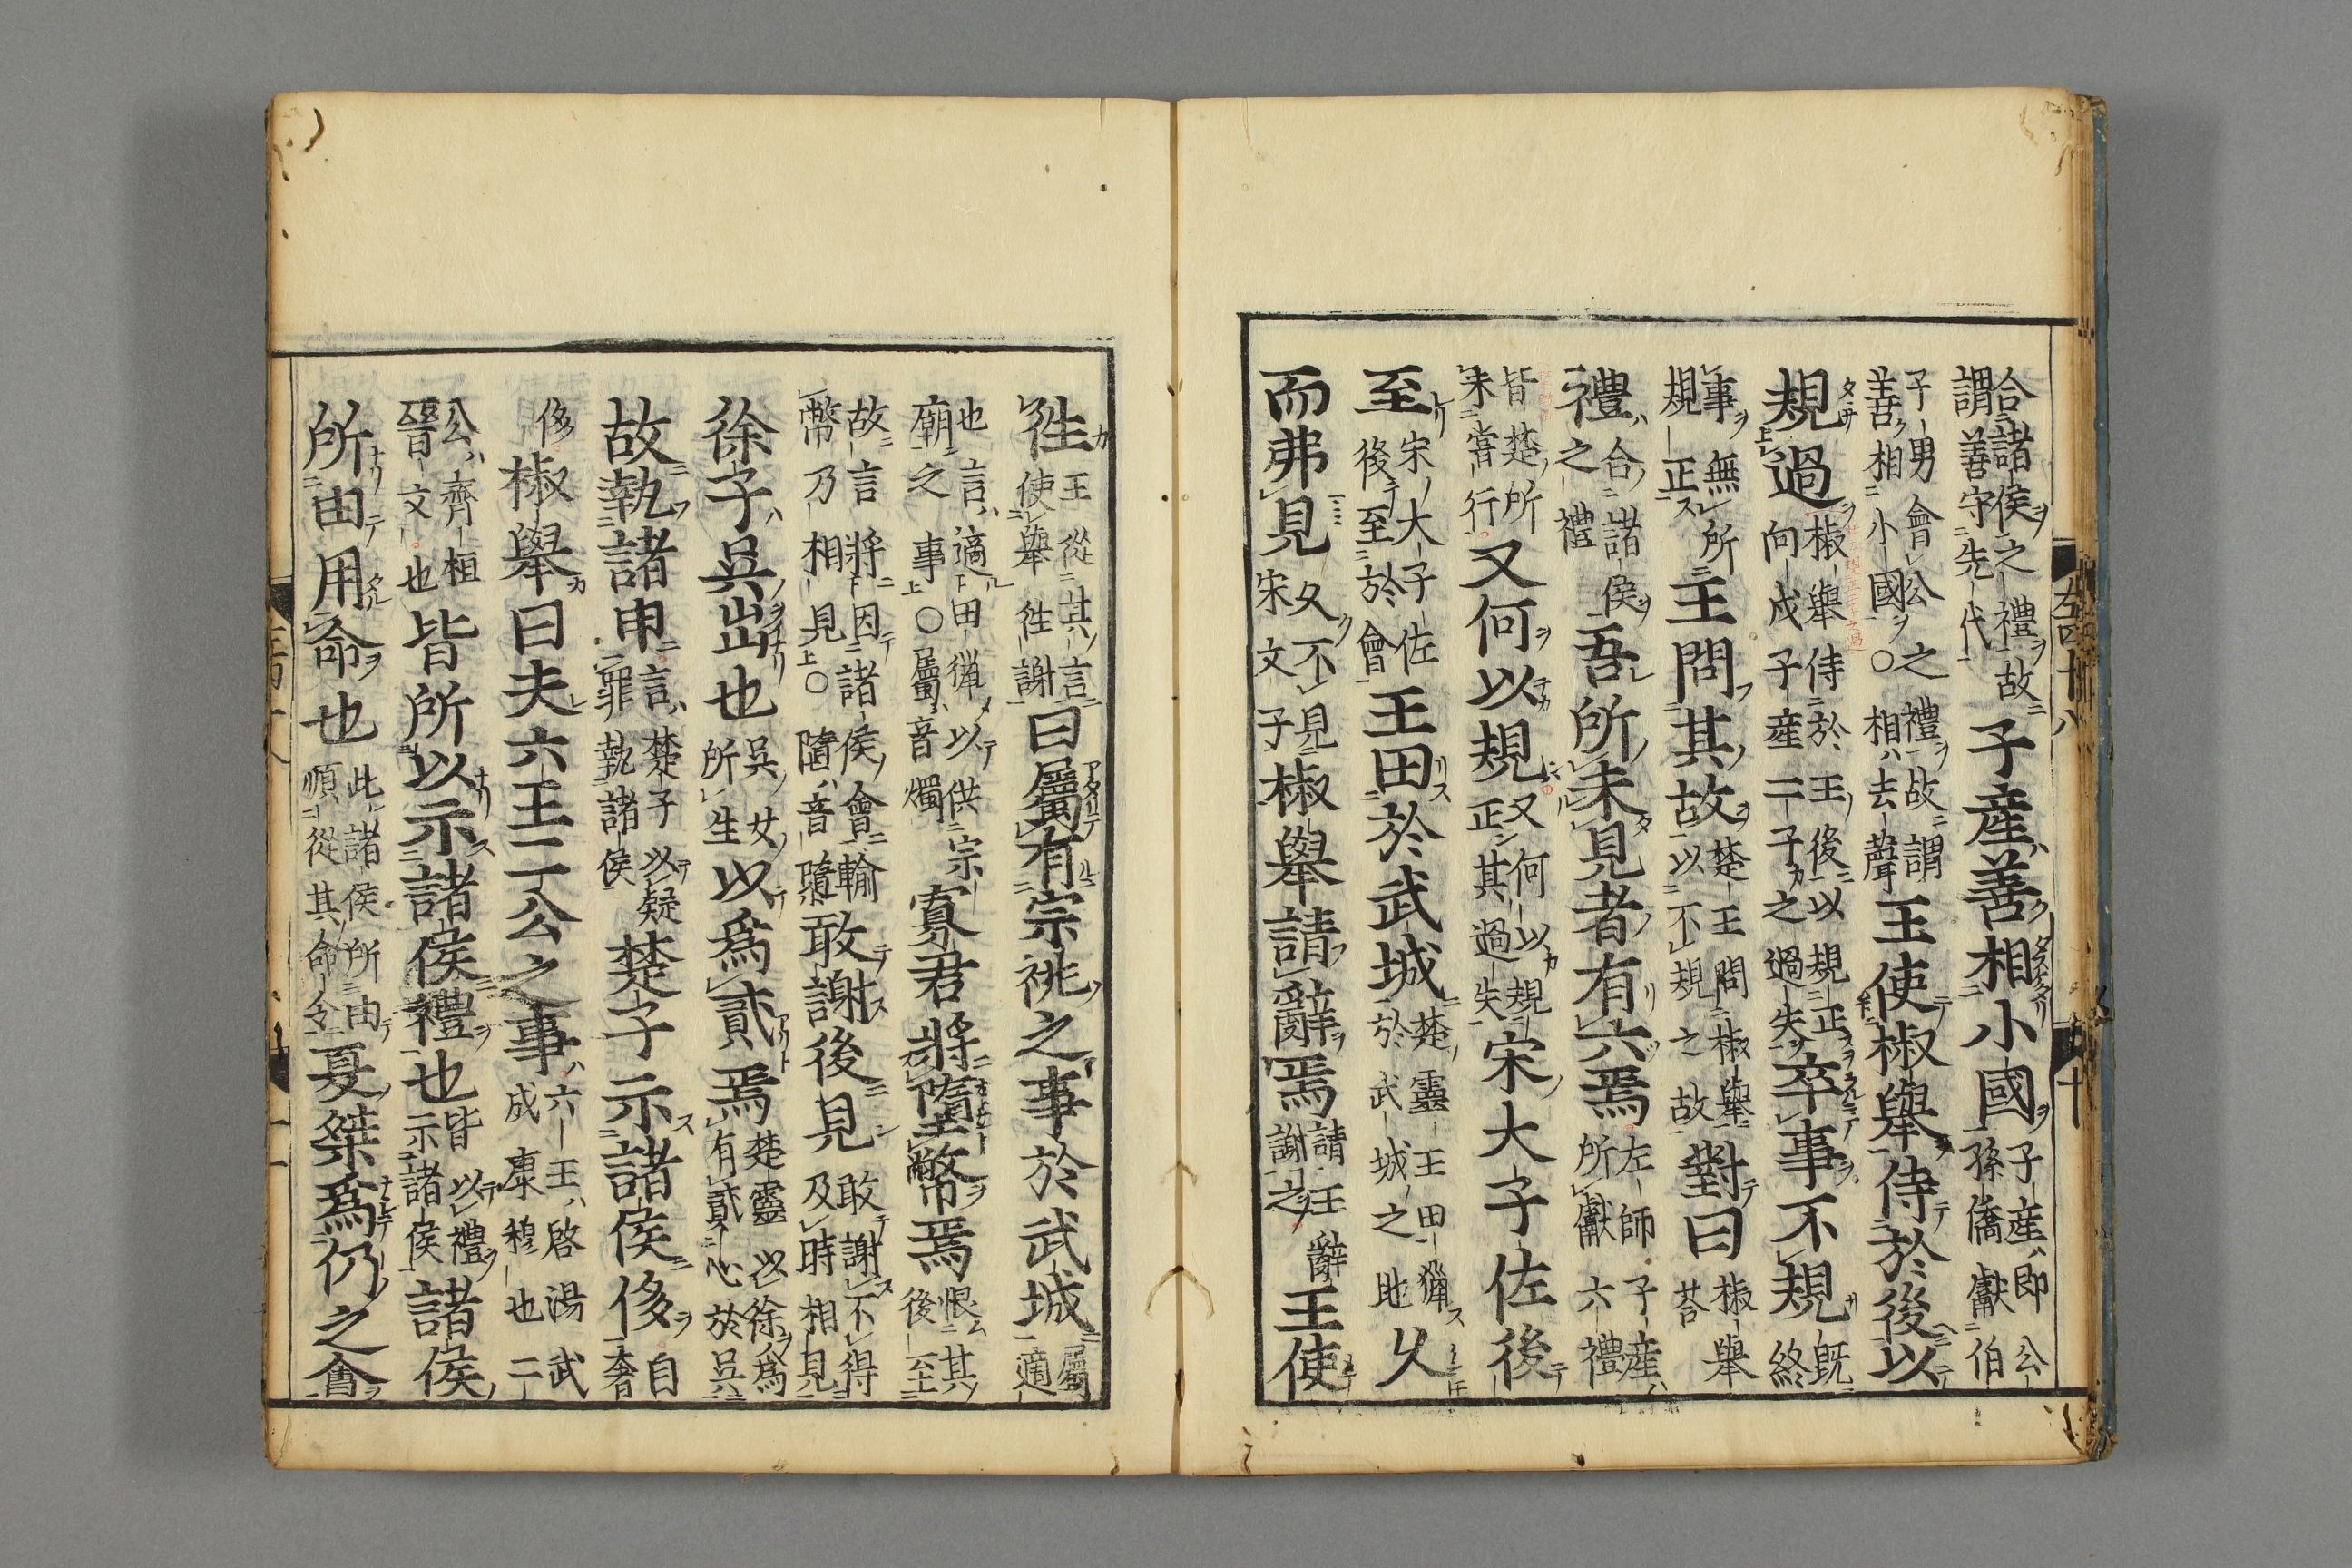 合諸侯之禮故謂善守先代子產善相小國子產即公孫僑獻伯
子男會公之禮故謂善相小國○相去聲王使椒舉侍於後以
規過椒舉侍於王後以規正向戌子產二子之過失卒事不規既終
事無所規正王問其故楚王問椒舉以不規之故對曰椒舉荅
禮合諸侯之禮吾所未見者有六焉左師子產所獻六禮
皆楚所未甞行又何以規又何以規正其過失宋大子佐後
至宋大子佐後至於會王田於武城楚靈王田獵於武城之地久
而弗見久不見宋文子椒舉請辭焉請王辭謝之王使
徃王從其言使舉徃謝曰屬有宗祧之事於武城屬適
也言適田獵以供宗廟之事○屬音燭寡君將墮幣焉恨其後至
故言將因諸侯會輸幣乃相見○墮音隳敢謝後見敢謝不得及時相見
徐子吳出也吳女所生以為貳焉楚靈以徐為有貳心於吳
故執諸申言楚子以疑罪執諸侯楚子示諸侯侈自奢
侈椒舉曰夫六王二公之事六王啓湯武成康穆也二
公齊桓晉文也皆所以示諸侯禮也皆以禮示諸侯諸侯
所由用命也此諸侯所由順從其命令夏桀為仍之會
左四十八
十